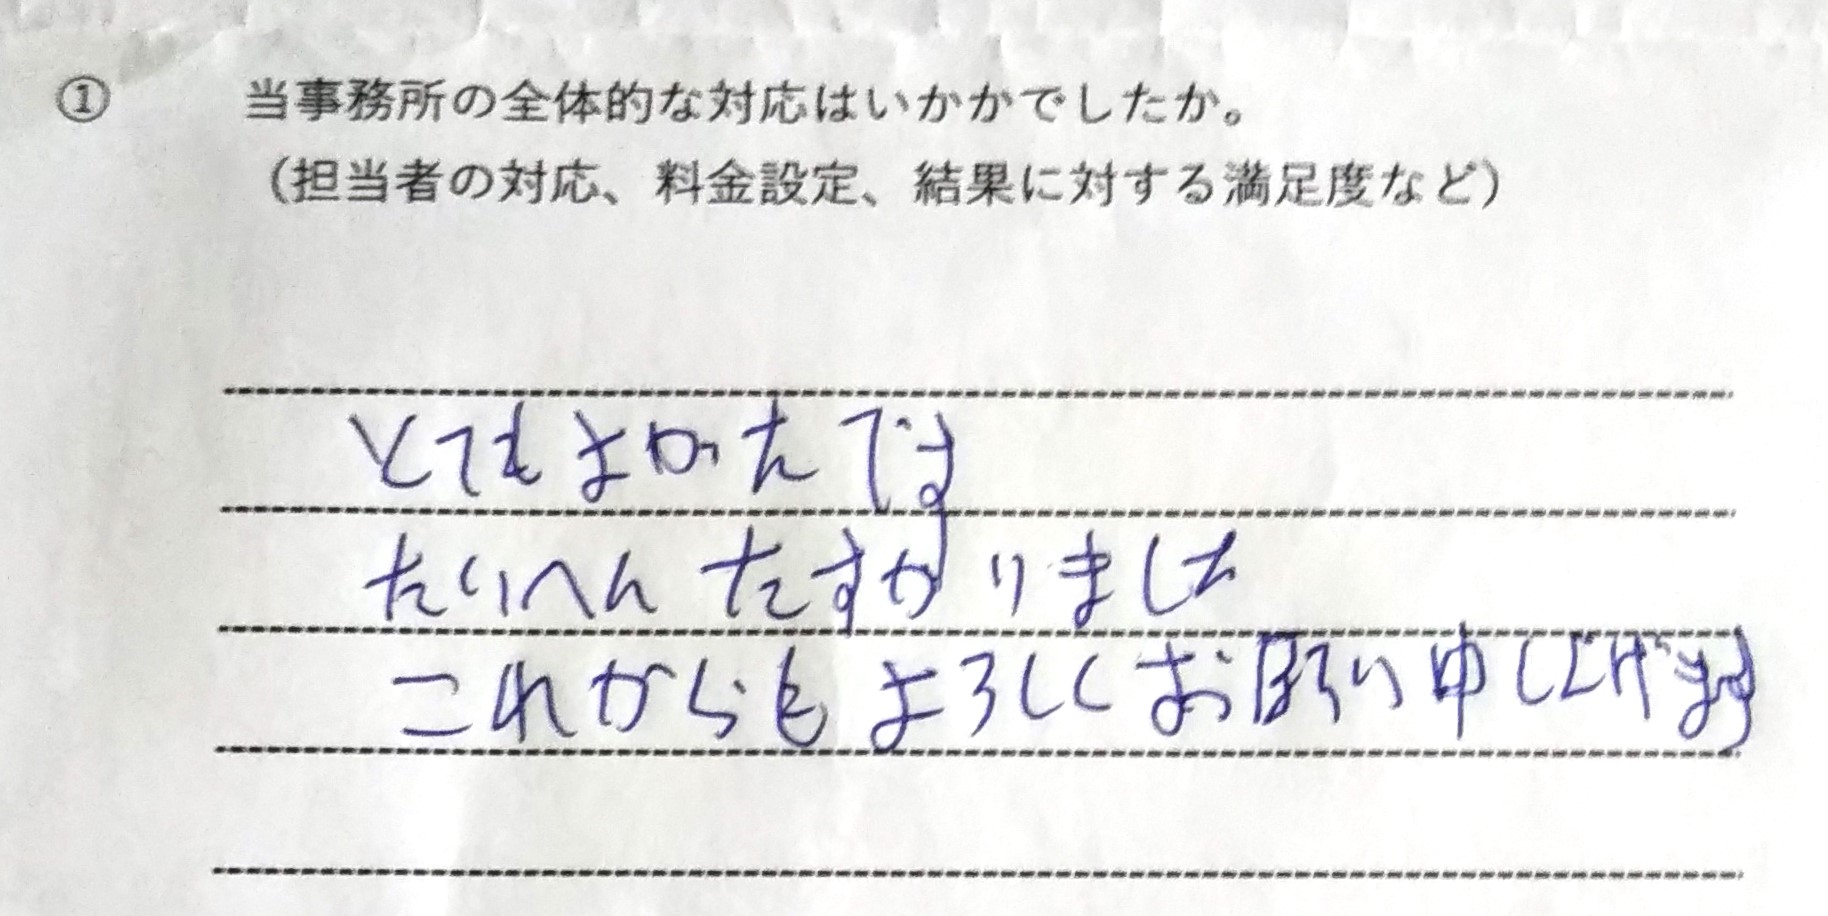 ① 当事務所の全体的な対応はいかかでしたか。
（担当者の対応、料金設定、結果に対する満足度など）
とてもよかったです
たいへん たすかりました
これからも よろしくお願い申し上げます